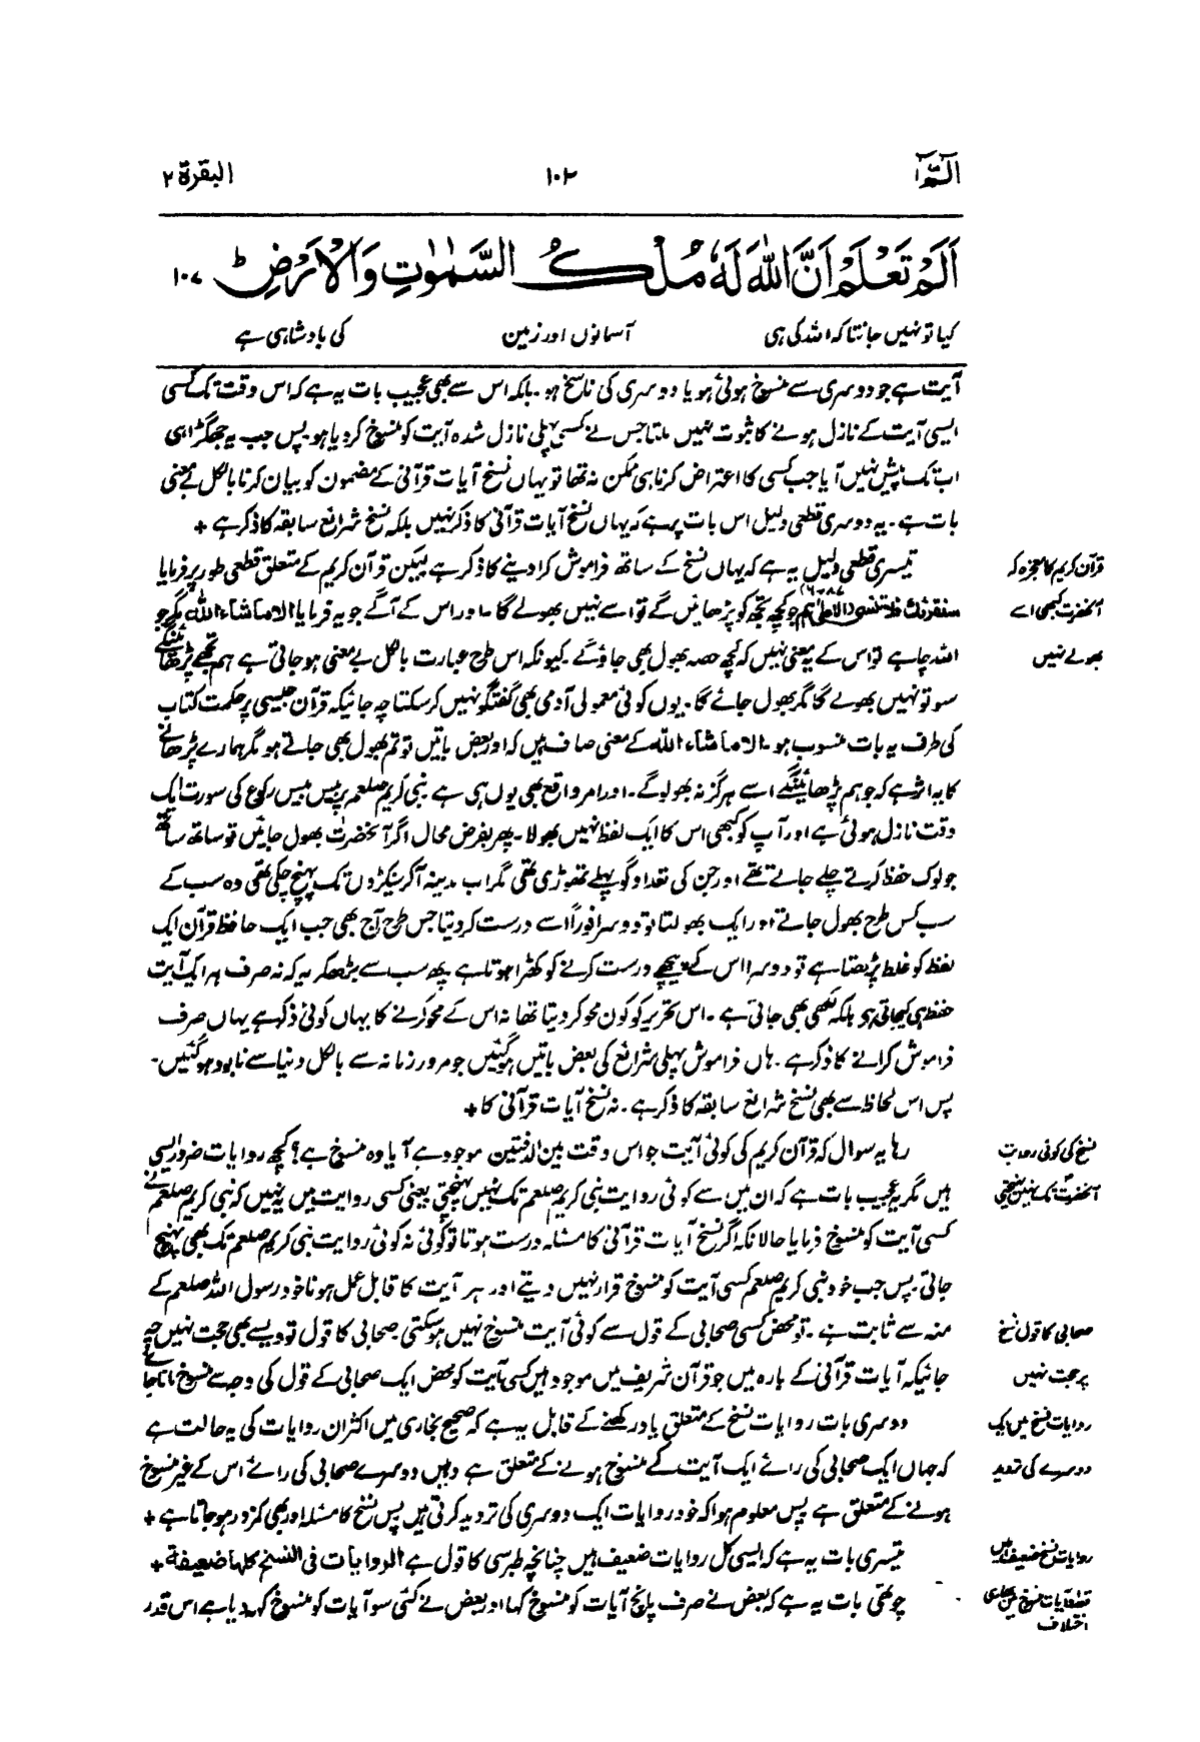 الٓمّٓ ١
١٠٢
البقرة ٢
اَلَمْ تَعْلَمْ اَنَّ اللّٰهَ لَهٗ مُلْكُ السَّمٰوٰتِ وَالْاَرْضِ ؕ ١٠٧
کیا تو نہیں جانتا کہ اللہ کی ہی آسمانوں اور زمین کی بادشاہی ہے
آیت ہے جو دوسری سے منسوخ ہوئی ہو یا دوسری کی ناسخ ہو۔ بلکہ اس سے بھی عجیب بات یہ ہے کہ اس وقت تک کسی
ایسی آیت کے نازل ہونے کا ثبوت نہیں ملتا جس نے کسی پہلی نازل شدہ آیت کو منسوخ کر دیا ہو پس جب یہ جھگڑا ہی
اب تک پیش نہیں آیا جب کسی کا اعتراض کرنا ہی ممکن نہ تھا تو یہاں نسخ آیات قرآنی کے مضمون کو بیان کرنا بالکل بے معنی
بات ہے۔ یہ دوسری قطعی دلیل اس بات پر ہے کہ یہاں نسخ آیات قرآنی کا ذکر نہیں بلکہ نسخ شرائع سابقہ کا ذکر ہے +
قرآن کریم کا معجزہ کہ
آنحضرت کبھی اسے
بھولے نہیں
تیسری قطعی دلیل یہ ہے کہ یہاں نسخ کے ساتھ فراموش کرا دینے کا ذکر ہے لیکن قرآن کریم کے متعلق قطعی طور پر فرمایا
سنقرئك فلا تنسى (الاعلى ٨٧-٦) ہم جو کچھ تجھ کو پڑھائیں گے تو اسے نہیں بھولے گا۔ اور اس کے آگے جو یہ فرمایا الا ماشاء الله مگر جو
اللہ چاہے تو اس کے یہ معنی نہیں کہ کچھ حصہ بھول بھی جاؤ گے۔ کیونکہ اس طرح عبارت بالکل بے معنی ہو جاتی ہے ہم تجھے پڑھائینگے
سو تو نہیں بھولے گا مگر بھول جائے گا۔ یوں کوئی معمولی آدمی بھی گفتگو نہیں کر سکتا چہ جائیکہ قرآن جیسی پر حکمت کتاب
کی طرف یہ بات منسوب ہو۔ الا ماشاء الله کے معنی صاف ہیں کہ اور بعض باتیں تو تم بھول بھی جاتے ہو مگر ہمارے پڑھانے
کا یہ اثر ہے کہ جو ہم پڑھائینگے اسے ہرگز نہ بھولو گے۔ اور امر واقع بھی یوں ہی ہے نبی کریم صلعم پر بیس بیس رکوع کی سورت ایک
وقت نازل ہوئی ہے اور آپ کو کبھی اس کا ایک لفظ نہیں بھولا۔ پھر بفرض محال اگر آنحضرت بھول جائیں تو ساتھ ساتھ
جو لوگ حفظ کرتے چلے جاتے تھے اور جن کی تعداد گو پہلے تھوڑی تھی مگر اب مدینہ آکر سینکڑوں تک پہنچ چکی تھی وہ سب کے
سب کس طرح بھول جاتے اور ایک بھولتا تو دوسرا فوراً اسے درست کر دیتا جس طرح آج بھی جب ایک حافظ قرآن ایک
لفظ کو غلط پڑھتا ہے تو دوسرا اس کے پیچھے درست کرنے کو کھڑا ہوتا ہے پھر سب سے بڑھ کر یہ کہ نہ صرف ہر ایک آیت
حفظ ہی کیجاتی ہو بلکہ لکھی بھی جاتی ہے۔ اس تحریر کو کون محو کر دیتا تھا نہ اس کے محو کرنے کا یہاں کوئی ذکر ہے یہاں صرف
فراموش کرانے کا ذکر ہے۔ ہاں فراموش پہلی شرائع کی بعض باتیں ہو گئیں جو مرور زمانہ سے بالکل دنیا سے نابود ہو گئیں۔
پس اس لحاظ سے بھی نسخ شرائع سابقہ کا ذکر ہے۔ نہ نسخ آیات قرآنی کا +
نسخ کی کوئی روایت
آنحضرت تک نہیں پہنچتی
رہا یہ سوال کہ قرآن کریم کی کوئی آیت جو اس وقت بین الدفتین موجود ہے آیا وہ منسوخ ہے؟ کچھ روایات ضرور ایسی
ہیں مگر یہ عجیب بات ہے کہ ان میں سے کوئی روایت نبی کریم صلعم تک نہیں پہنچتی یعنی کسی روایت میں یہ نہیں کہ نبی کریم صلعم نے
کسی آیت کو منسوخ فرمایا حالانکہ اگر نسخ آیات قرآنی کا مسئلہ درست ہوتا تو کوئی نہ کوئی روایت نبی کریم صلعم تک بھی پہنچ
جاتی پس جب خود نبی کریم صلعم کسی آیت کو منسوخ قرار نہیں دیتے اور ہر آیت کا قابل عمل ہونا خود رسول اللہ صلعم کے
صحابی کا قول نسخ
پر حجت نہیں
منہ سے ثابت ہے۔ تو محض کسی صحابی کے قول سے کوئی آیت منسوخ نہیں ہو سکتی صحابی کا قول تو ویسے بھی حجت نہیں چہ
جائیکہ آیات قرآنی کے بارہ میں جو قرآن شریف میں موجود ہیں کسی آیت کو محض ایک صحابی کے قول کی وجہ سے منسوخ مانا جائے
روایات نسخ میں ایک
دوسرے کی تردید
دوسری بات روایات نسخ کے متعلق یاد رکھنے کے قابل یہ ہے کہ صحیح بخاری میں اکثر ان روایات کی یہ حالت ہے
کہ جہاں ایک صحابی کی رائے ایک آیت کے منسوخ ہونے کے متعلق ہے وہیں دوسرے صحابی کی رائے اس کے غیر منسوخ
ہونے کے متعلق ہے پس معلوم ہوا کہ خود روایات ایک دوسری کی تردید کرتی ہیں پس نسخ کا مسئلہ اور بھی کمزور ہو جاتا ہے +
روایات نسخ ضعیف ہیں
تیسری بات یہ ہے کہ ایسی کل روایات ضعیف ہیں چنانچہ طبرسی کا قول ہے الروايات فى النسخ كلها ضعيفة +
تعداد آیات منسوخ میں بھاری
اختلاف
چوتھی بات یہ ہے کہ بعض نے صرف پانچ آیات کو منسوخ کہا اور بعض نے کئی سو آیات کو منسوخ کہہ دیا ہے اس قدر